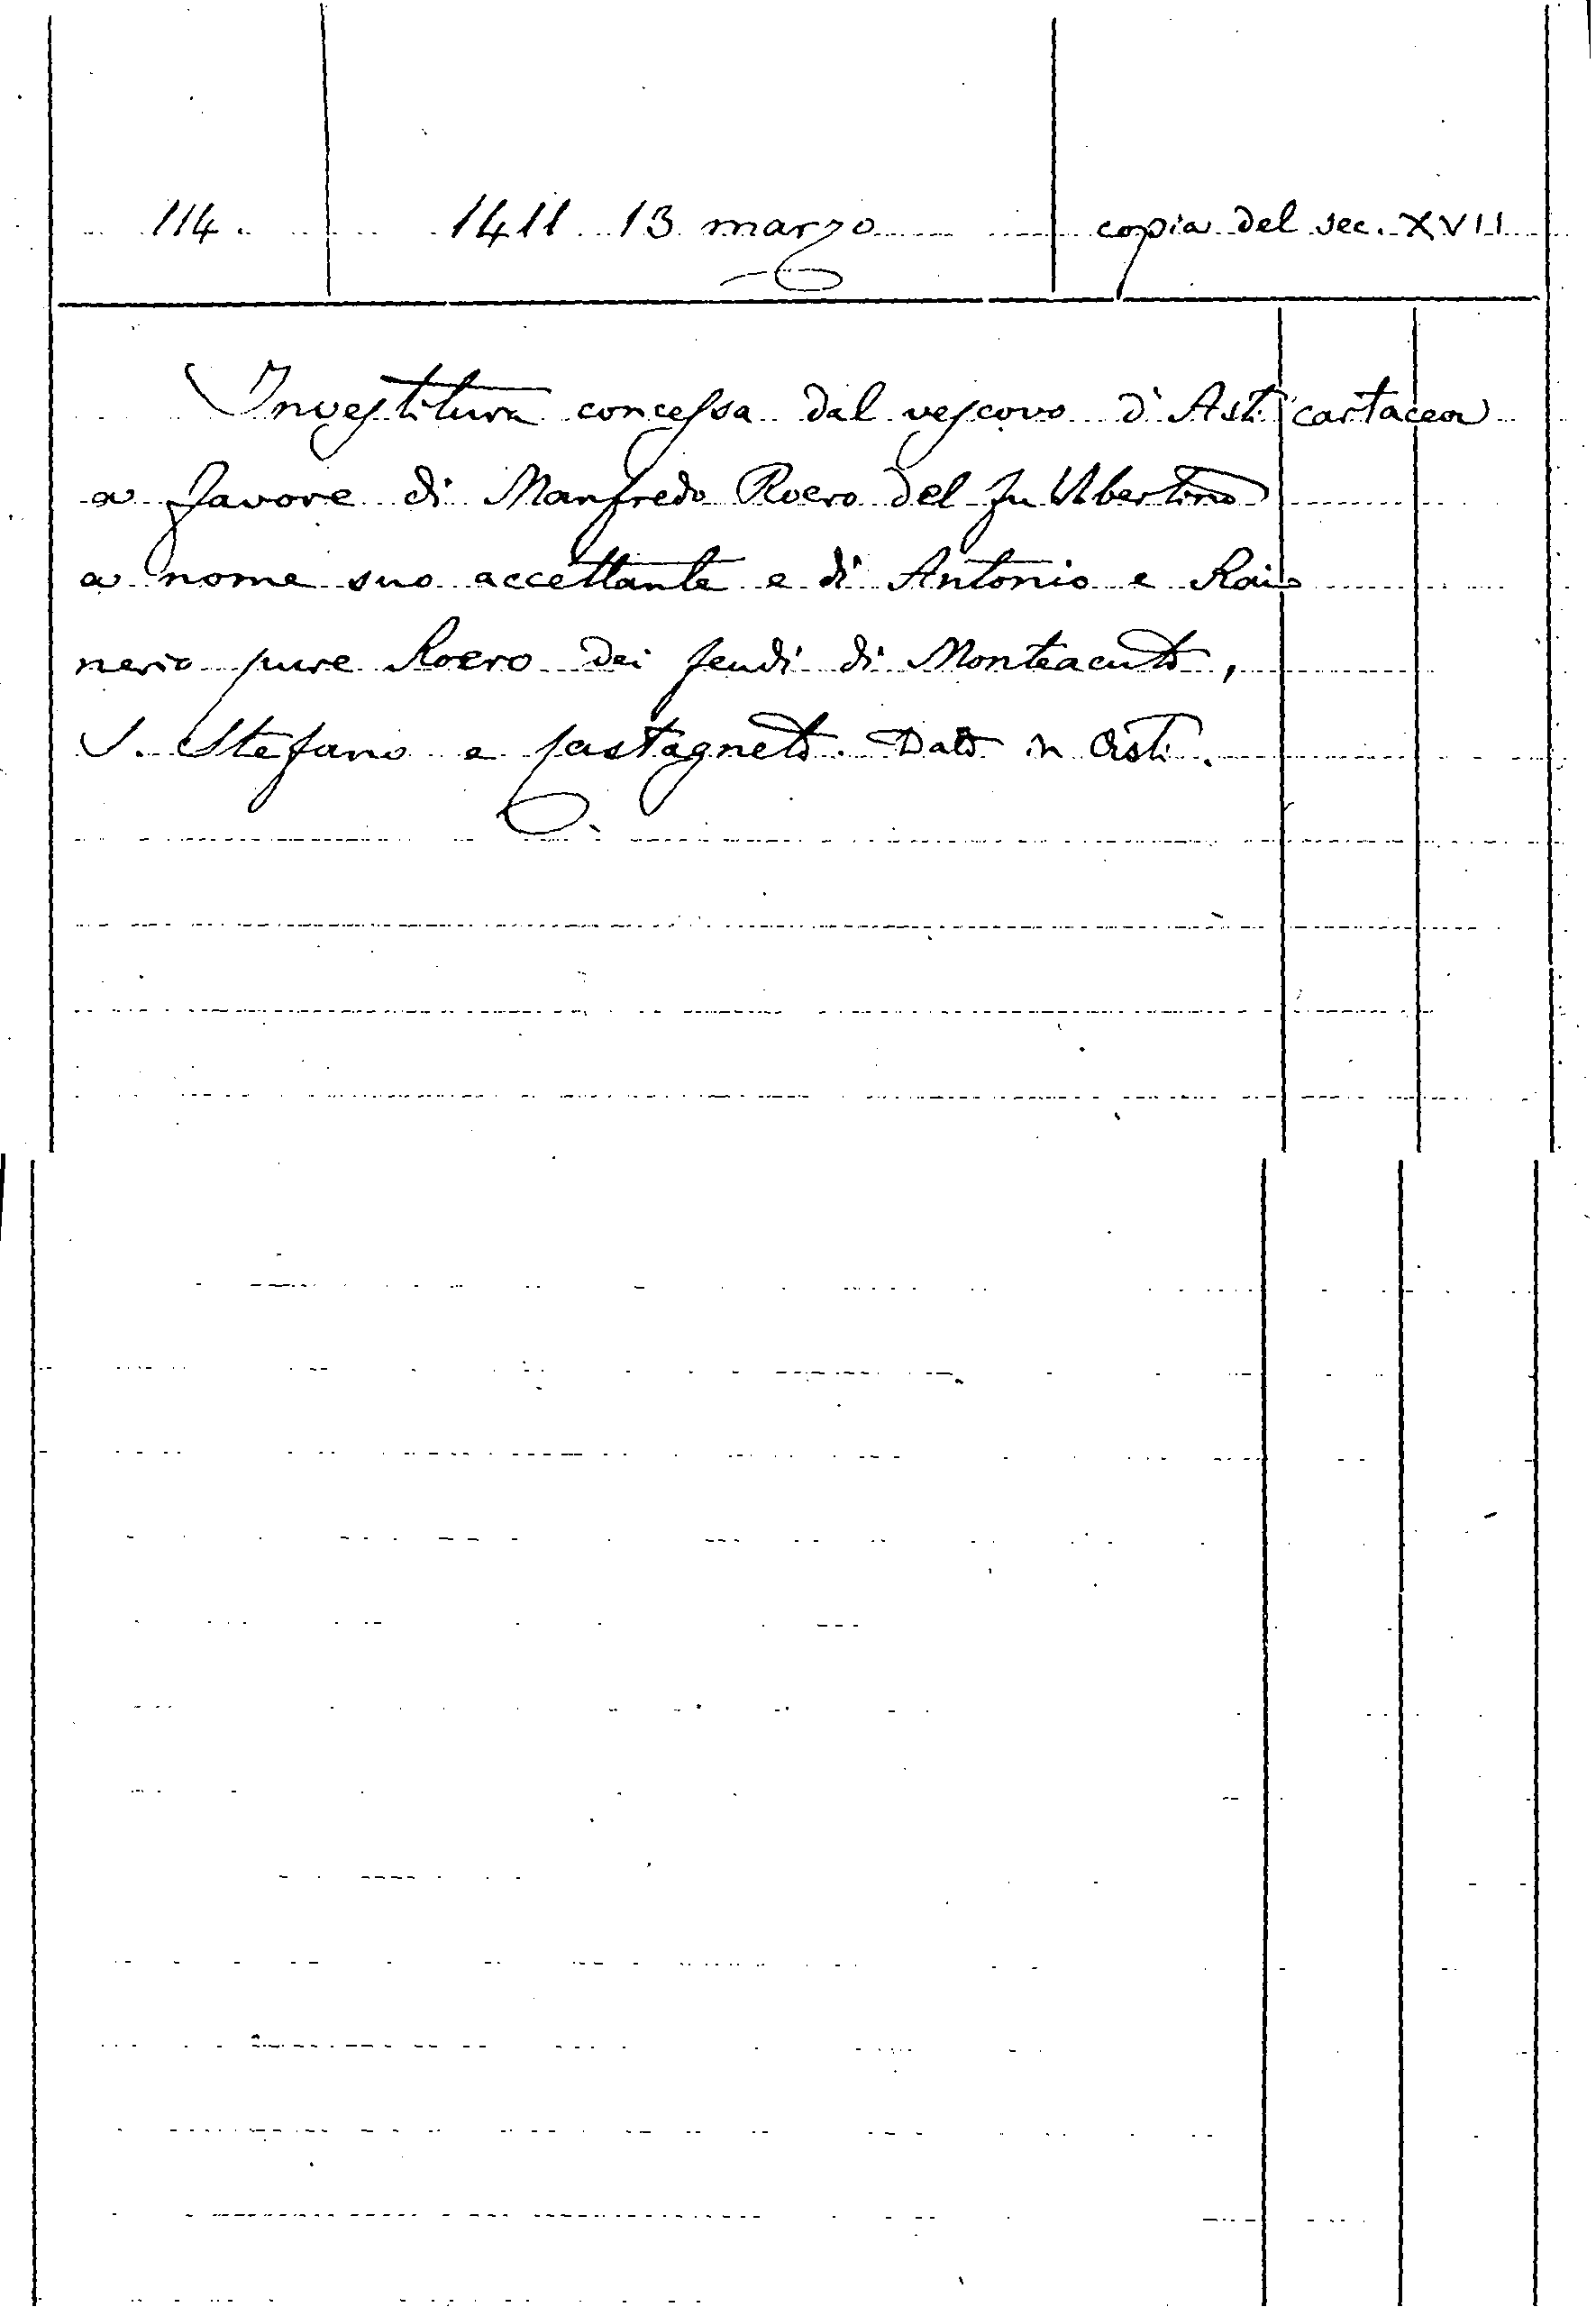 114. 1411 13 marzo copia del sec. XVII
Investitura concessa dal vescovo d'Asti cartacea
a favore di Manfredo Roero del fu Ubertino
a nome suo accettante e di Antonio e Rai
nerio pure Roero dei feudi di Monteacuto,
S. Stefano e Castagneto. Dato in Asti.